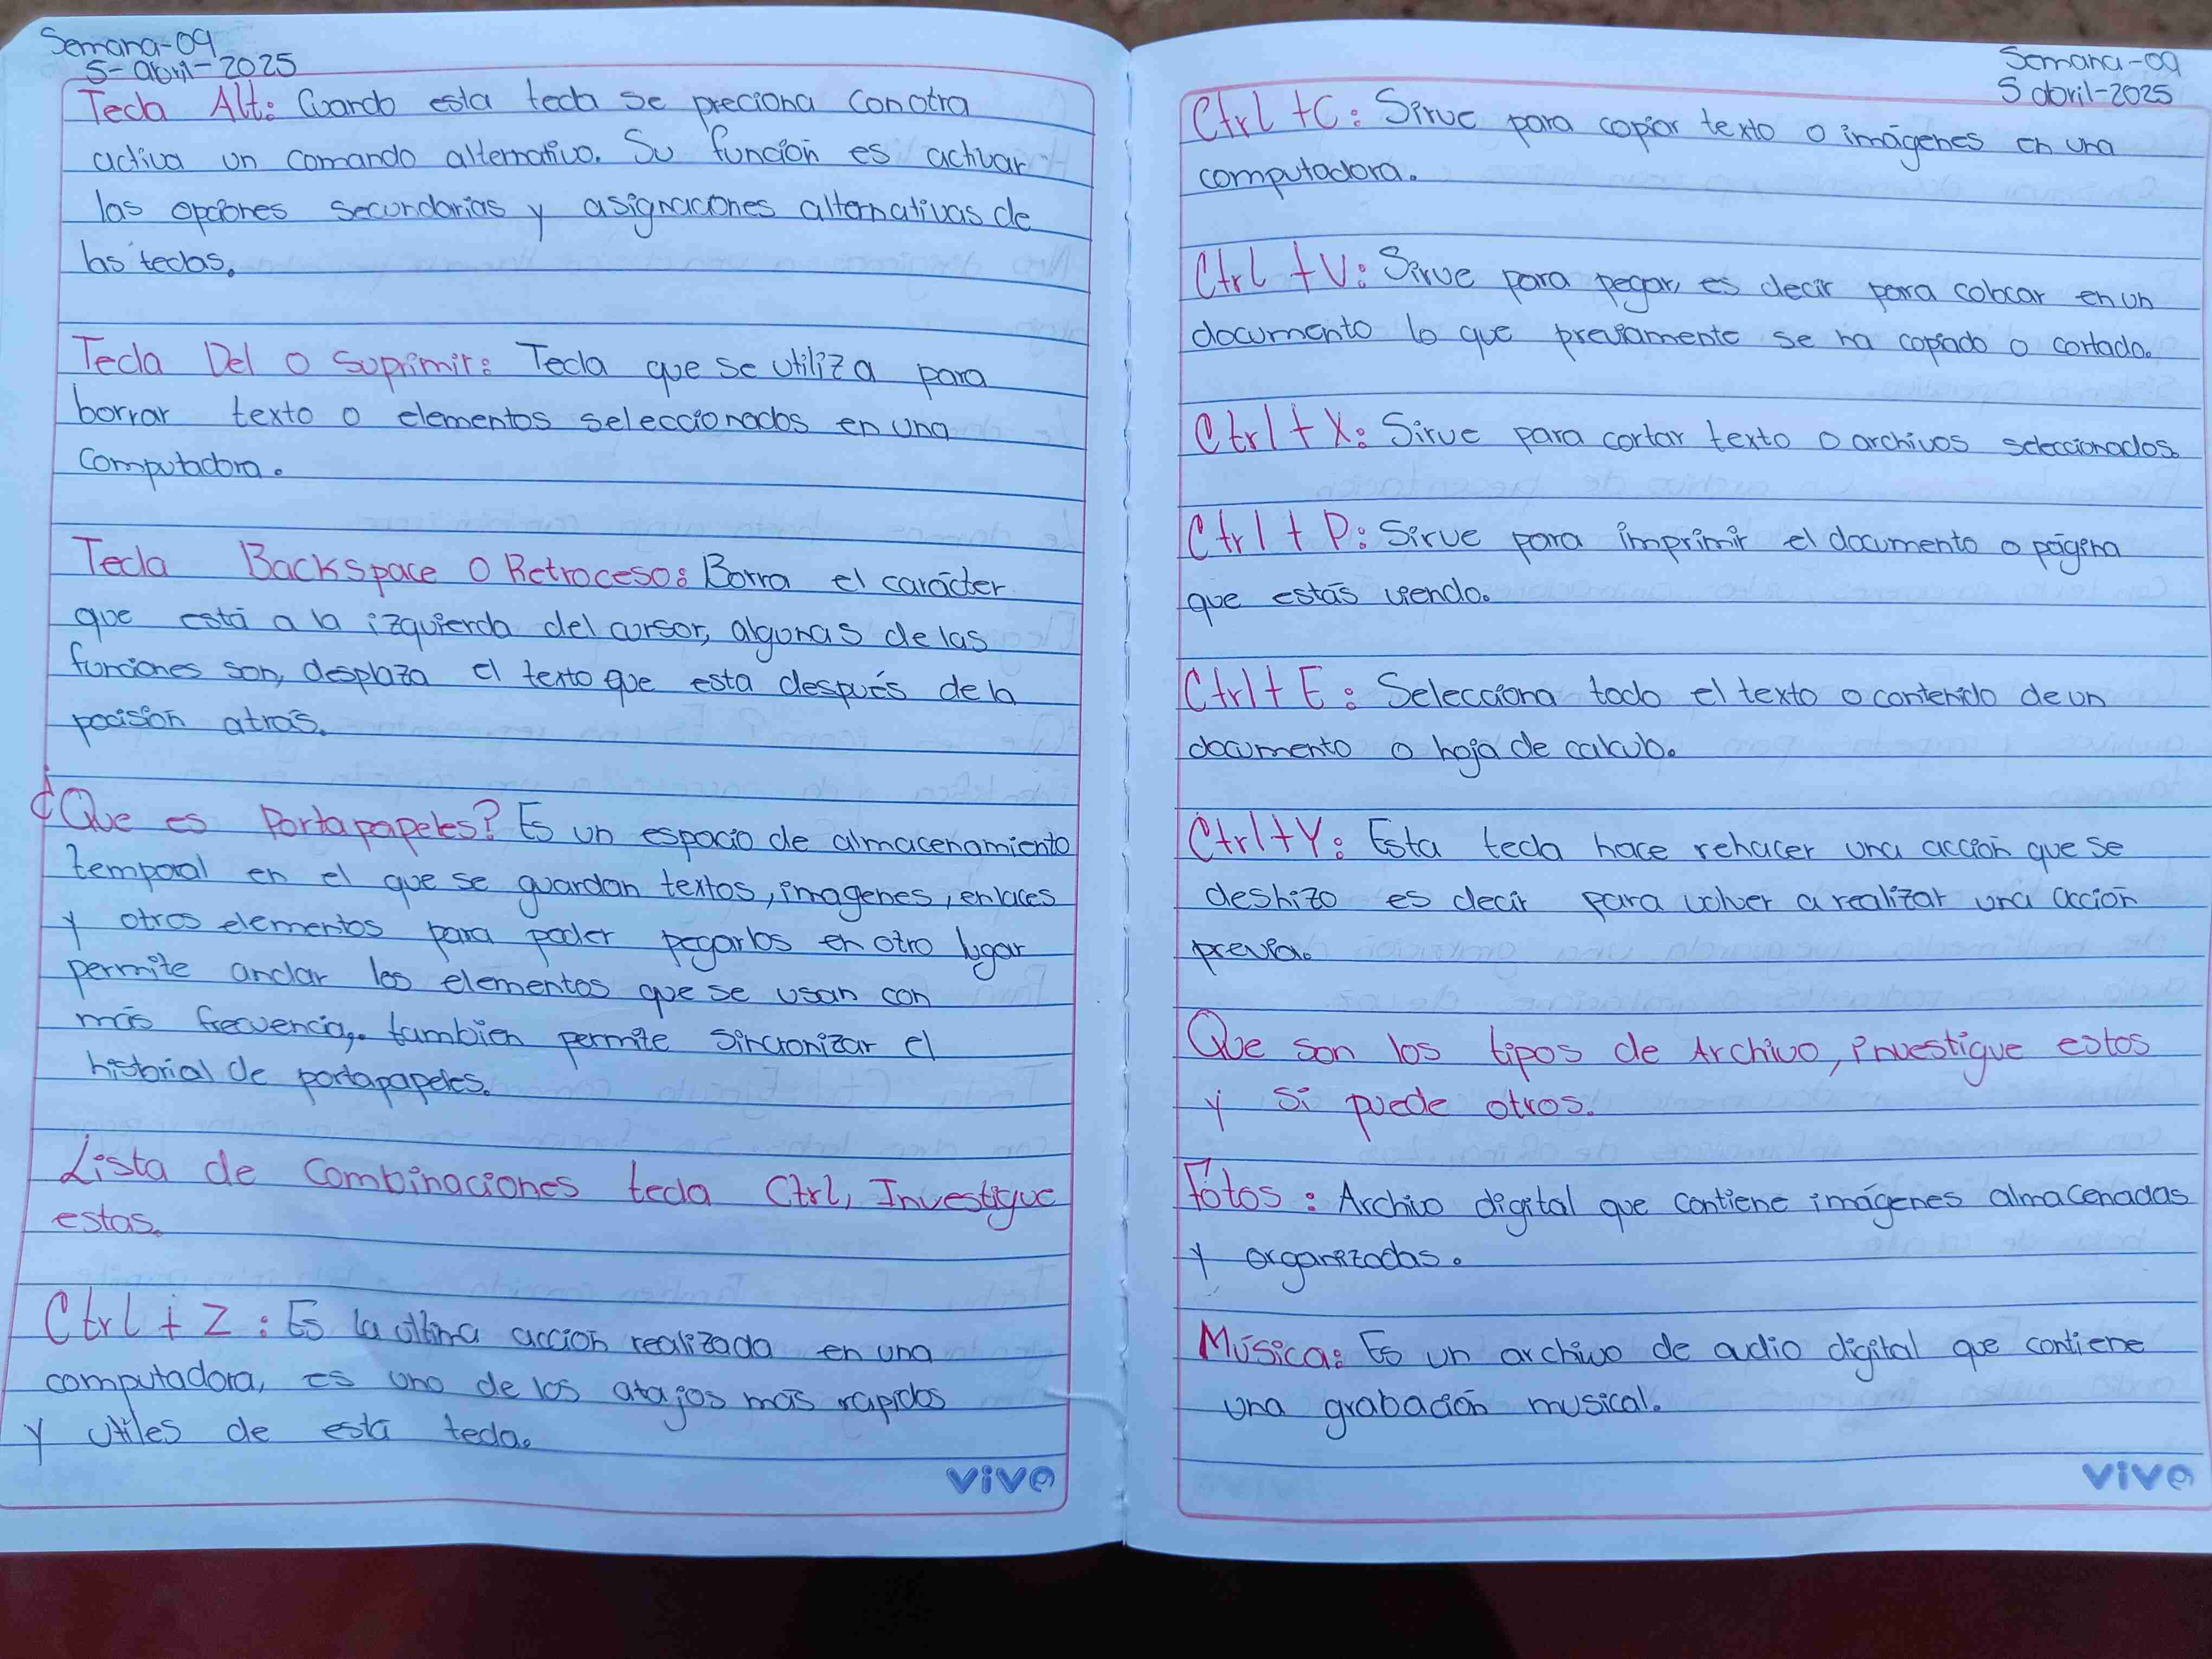 Semana-09
5-abril-2025
Tecla Alt: Cuando esta tecla se preciona con otra
activa un comando alternativo. Su función es activar
las opciones secundarias y asignaciones alternativas de
las teclas.
Tecla Del o Suprimir: Tecla que se utiliza para
borrar texto o elementos seleccionados en una
computadora.
Tecla Backspace o Retroceso: Borra el carácter
que está a la izquierda del cursor, algunas de las
funciones son, desplaza el texto que esta después de la
pocisión atrás.
¿Que es Portapapeles? Es un espacio de almacenamiento
temporal en el que se guardan textos, imagenes, enlaces
y otros elementos para poder pegarlos en otro lugar
permite anclar los elementos que se usan con
más frecuencia, tambien permite sincronizar el
historial de portapapeles.
Lista de combinaciones tecla Ctrl, Investigue
estas.
Ctrl + Z : Es la última acción realizada en una
computadora, es uno de los atajos más rapidos
y utiles de está tecla.
vive
Semana-09
5 abril-2025
Ctrl +C: Sirve para copiar texto o imágenes en una
computadora.
Ctrl +V: Sirve para pegar, es decir para colocar en un
documento lo que previamente se ha copiado o cortado.
Ctrl + X: Sirve para cortar texto o archivos seleccionados.
Ctrl + P: Sirve para imprimir el documento o página
que estás viendo.
Ctrl+ E: Selecciona todo el texto o contenido de un
documento o hoja de calculo.
Ctrl+Y: Esta tecla hace rehacer una acción que se
deshizo es decir para volver a realizar una acción
previa.
Que son los tipos de Archivo, investigue estos
y si puede otros.
Fotos: Archivo digital que contiene imágenes almacenadas
y organizadas.
Música: Es un archivo de audio digital que contiene
una grabación musical.
vive